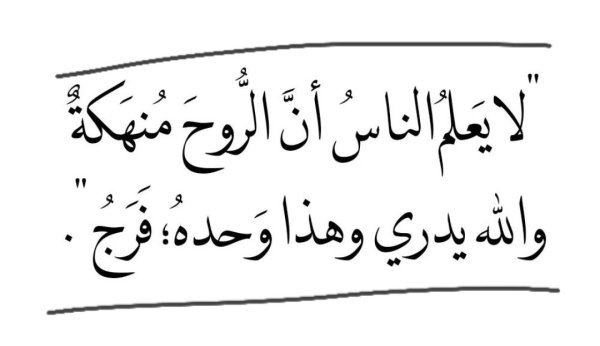 "لا يَعلمُ الناسُ أنَّ الرُّوحَ مُنهَكةٌ
والله يدري وهذا وَحدهُ؛ فَرَجُ".